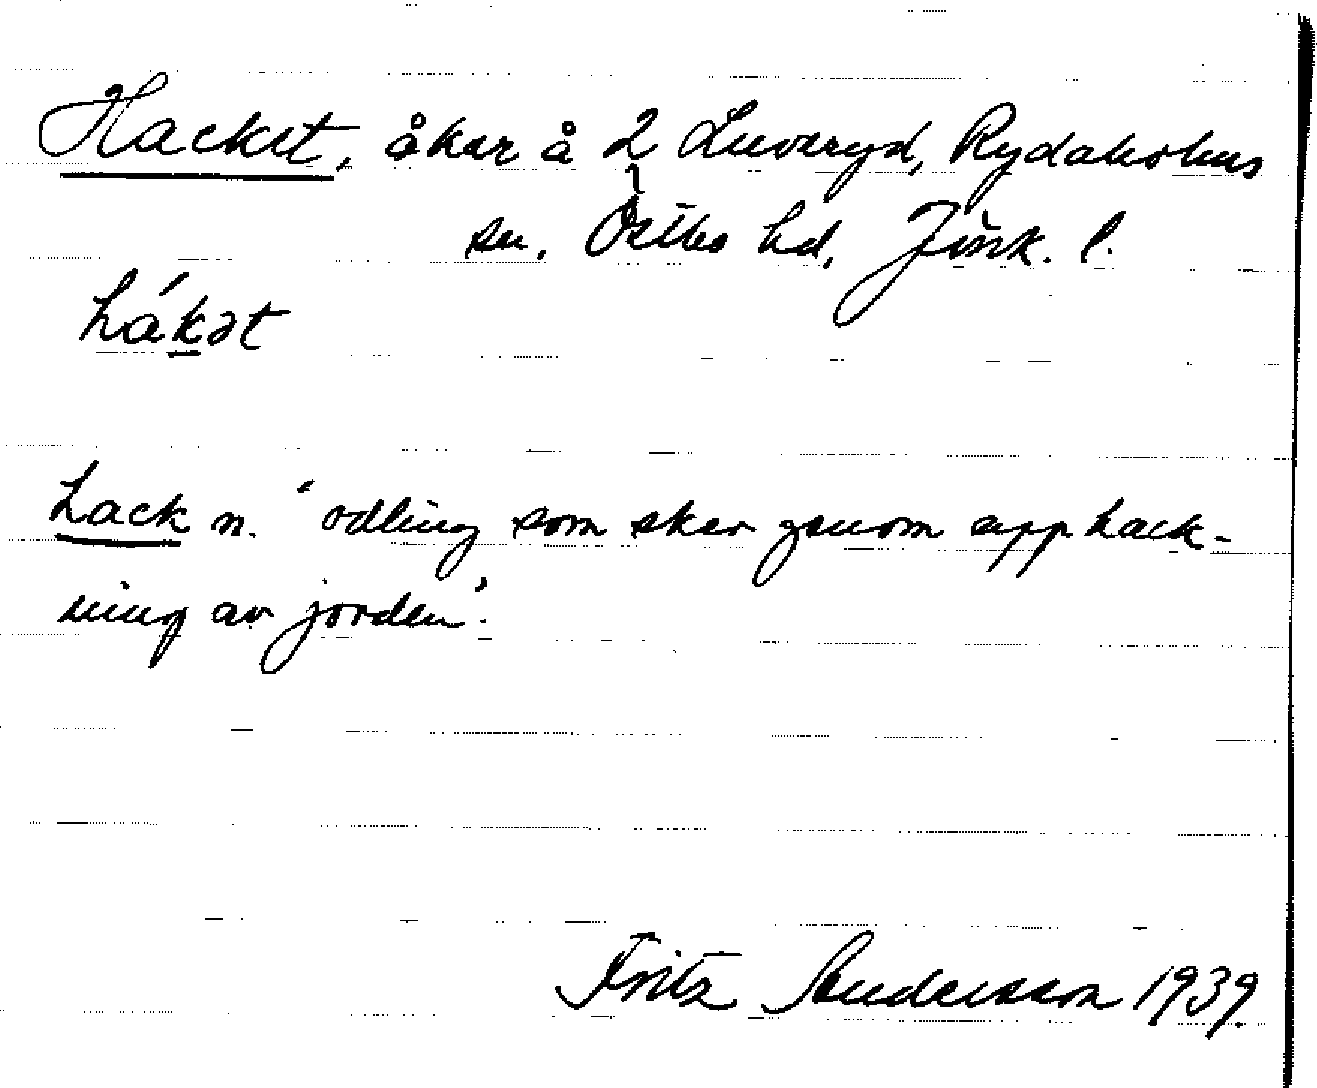 Hacket, åker å 2 Luveryd, Rydaholms
sn. Östbo hd, Jönk. l.
hákət
hack n. ‘odling som sker genom upphack-
ning av jorden’.
Fritz Andersson 1939